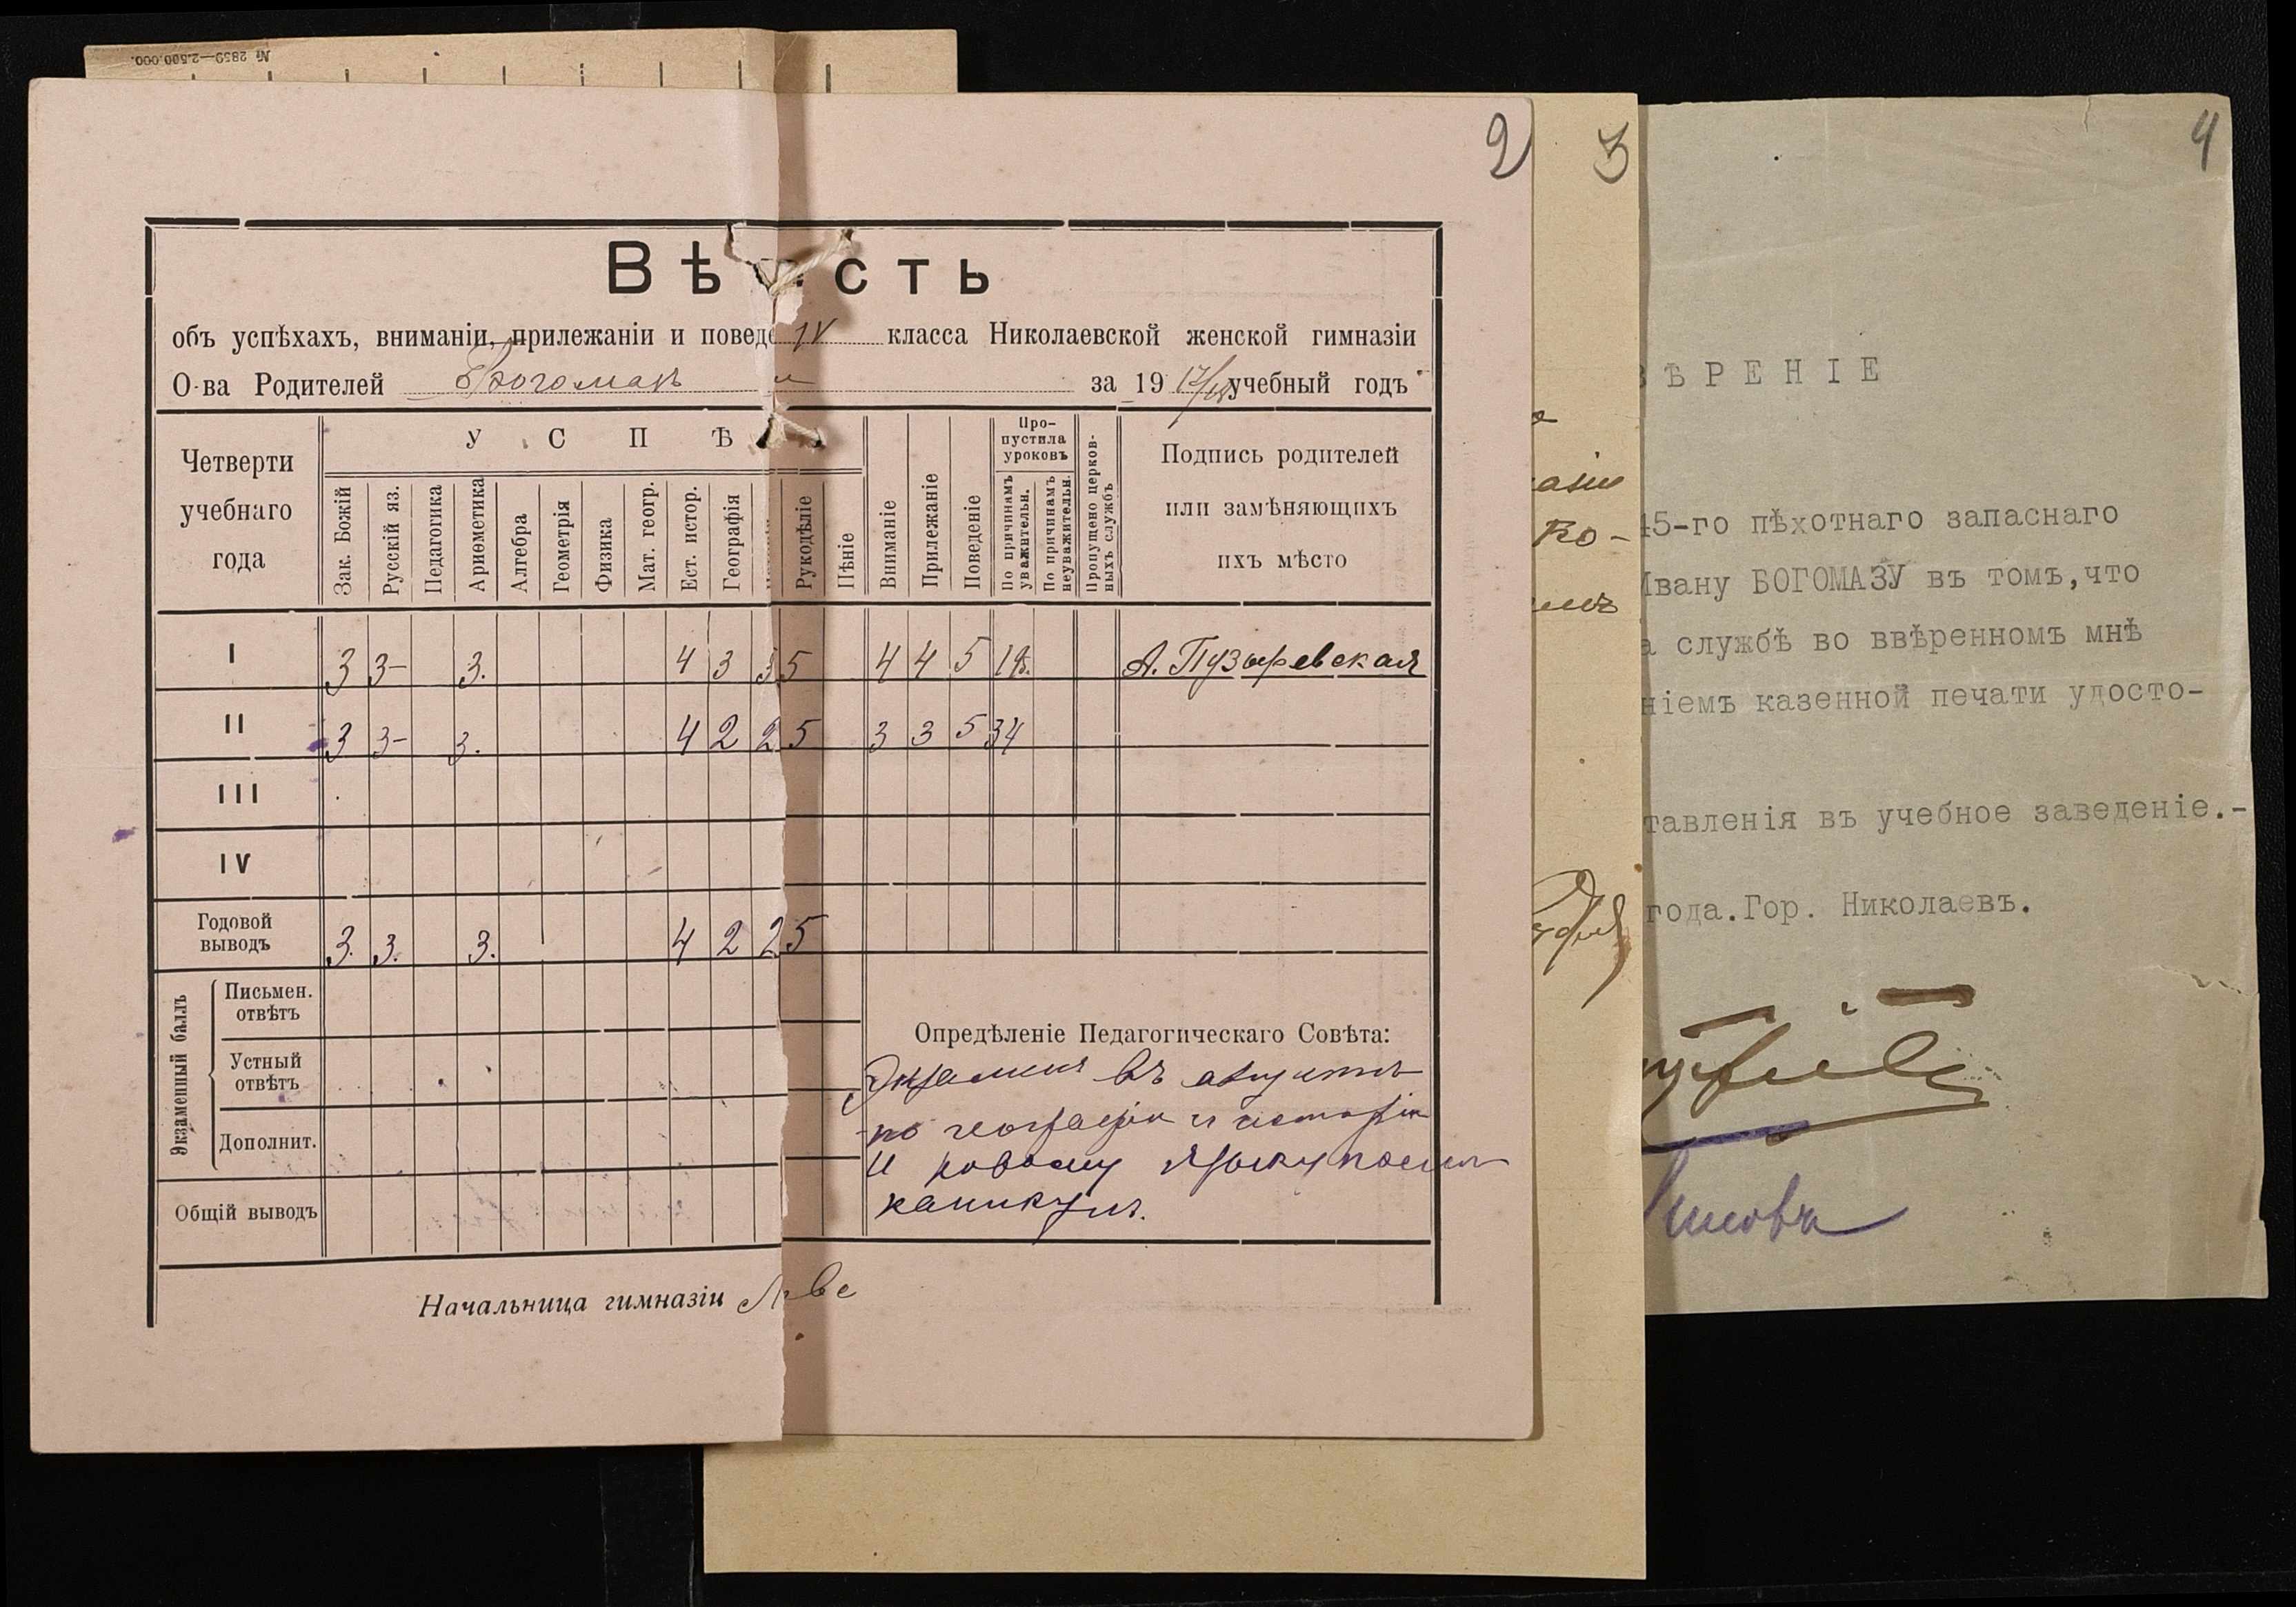 № 2859—2.500.000.
2
3
4
Вѣ сть
объ успѣхахъ, вниманіи, прилежаніи и поведе IV класса Николаевской женской гимназіи
О-ва Родителей Богомазъ за 19 17/18 учебный годъ
Четверти учебнаго года
У С П Ѣ
Зак. Божій
Русскій яз.
Педагогика
Ариѳметика
Алгебра
Геометрія
Физика
Мат. геогр.
Ест. истор.
Географія
Рукодѣліе
Пѣніе
Вниманіе
Прилежаніе
Поведеніе
Про-
пустила
уроковъ
По причинамъ
уважительн.
По причинамъ
неуважительн.
Пропущено церков-
ныхъ службъ
Подпись родителей
или замѣняющихъ
ихъ мѣсто
I 3 3- 3. 4 3 3 5 4 4 5 18. А. Пузыревская
II 3 3- 3. 4 2 2 5 3 3 5 34
III
IV
Годовой
выводъ 3. 3. 3. 4 2 2 5
Экзаменный баллъ
Письмен.
отвѣтъ
Устный
отвѣтъ
Дополнит.
Общій выводъ
Опредѣленіе Педагогическаго Совѣта:
Экзамены въ августѣ
по географіи и исторіи
и новому языку послѣ
каникулъ.
Начальница гимназіи
азіи
ко-
ВѢРЕНІЕ
45-го пѣхотнаго запаснаго
Ивану БОГОМАЗУ въ томъ,что
а службѣ во ввѣренномъ мнѣ
ніемъ казенной печати удосто-
тавленія въ учебное заведеніе.-
года.Гор. Николаевъ.